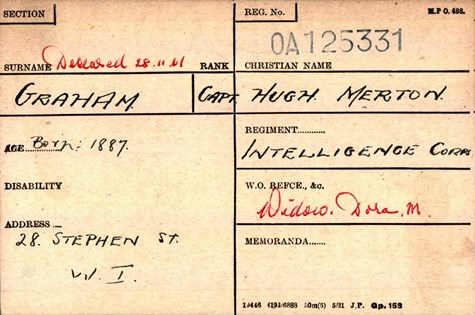 SECTION
REG. No.
M.P.O. 488.
OA125331
SURNAME Deceased 28.11.61 RANK CHRISTIAN NAME
GRAHAM CAPT. HUGH MERTON.
REGIMENT............
AGE Born: 1887. INTELLIGENCE CORPS
DISABILITY
W.O. REFCE., &c.
Widow. Dora, M.
ADDRESS ....
28. STEPHEN ST.
W. I.
MEMORANDA.......
5/21 J.P. Gp. 153